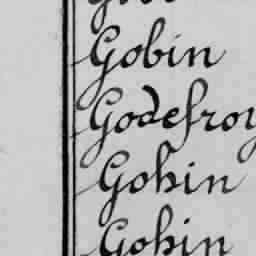 Gobin
Godefroy
Gohin
Gohin